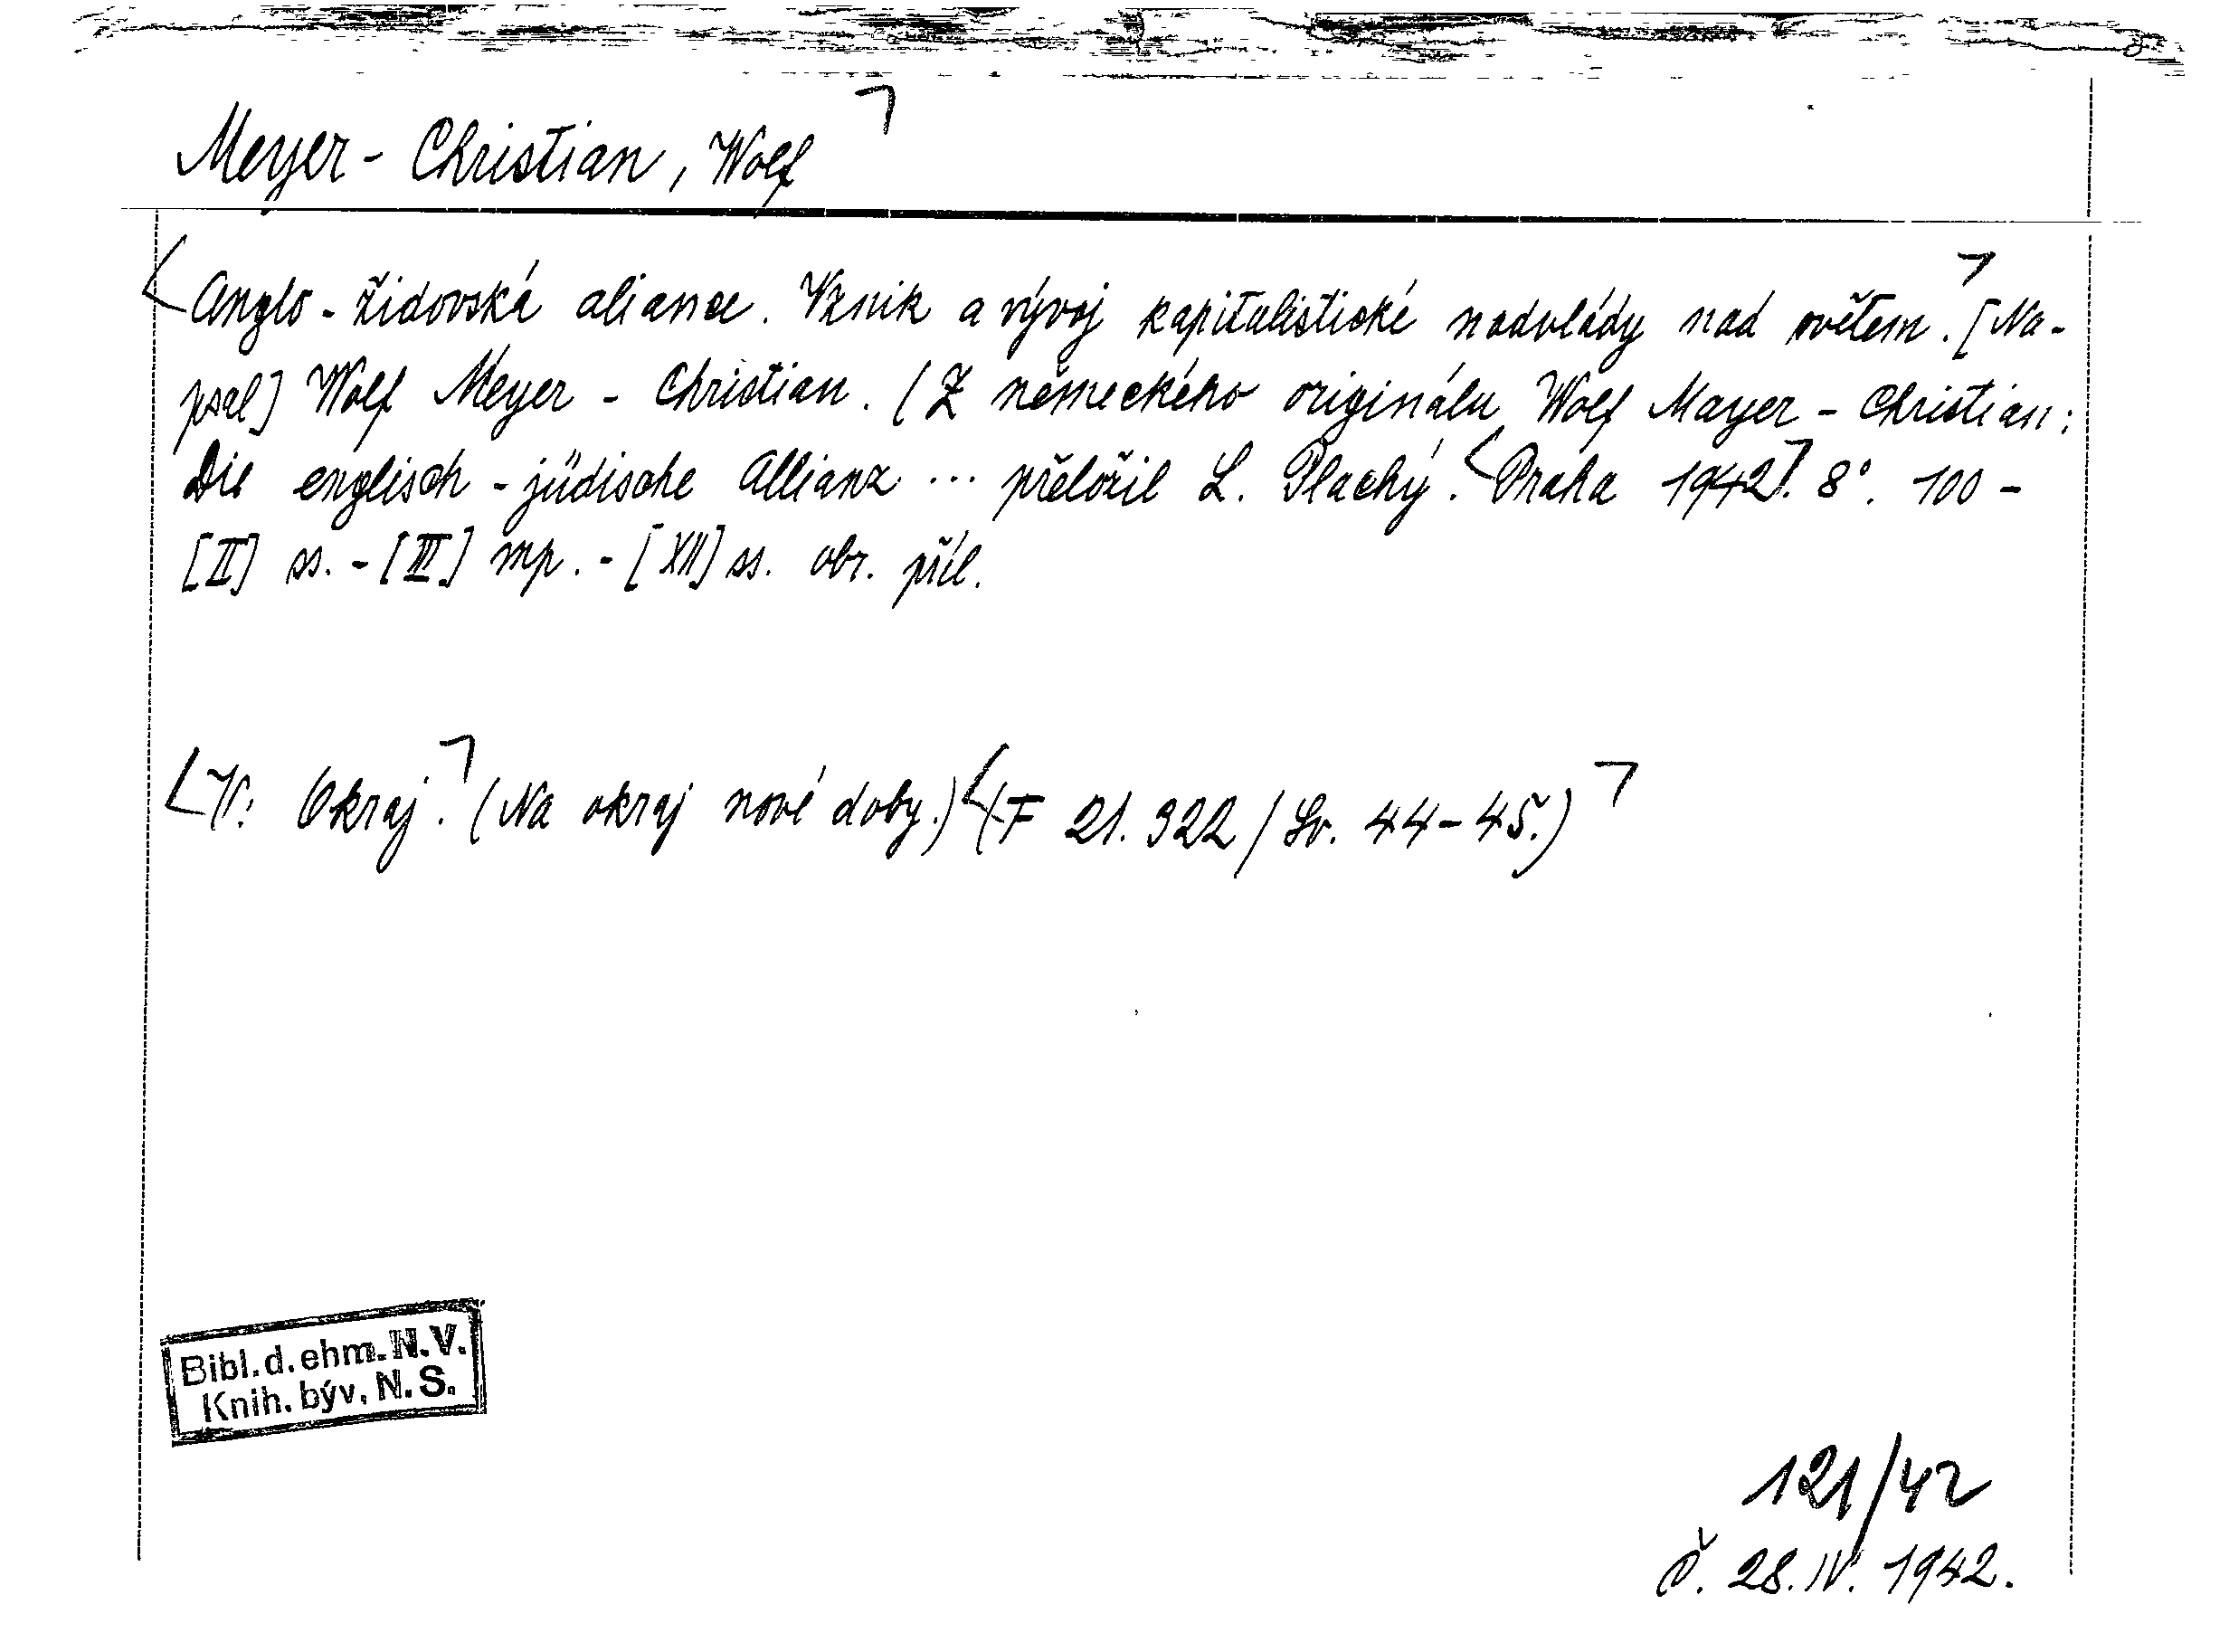 Meyer - Christian, Wolf
Anglo - židovská aliance. Vznik a vývoj kapitalistické nadvlády nad světem. [Na-
psal] Wolf Meyer - Christian. (Z německého originálu Wolf Mayer - Christian:
Die englisch - jüdische Allianz ... přeložil L. Plachý. Praha 1942. 8°. 100 -
[II] ss. - [III] mp. - [XII] ss. obr. příl.
V: Okraj. (Na okraj nové doby.) (F 21.322 / Sv. 44-45.)
Bibl. d. ehm. N. V.
Knih. býv. N. S.
121/42
Č. 28. IV. 1942.